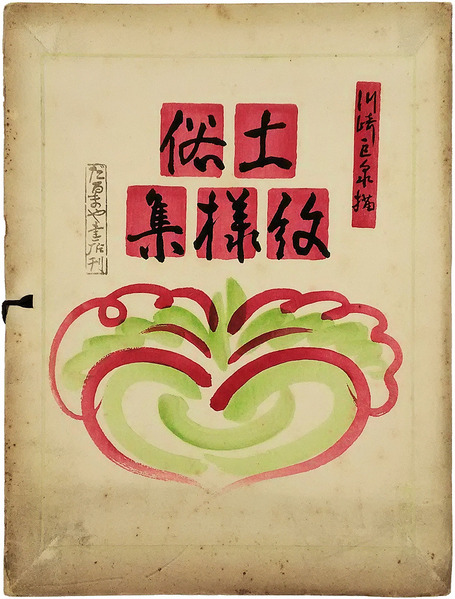 川崎巨泉描
土俗
紋様集
だるまや書店刊